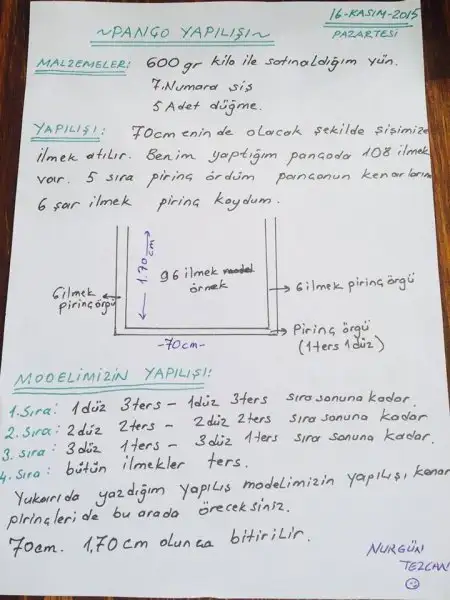 16-KASIM-2015
PAZARTESİ
~PANGO YAPILIŞI~
MALZEMELER: 600 gr kilo ile satınaldığım yün.
7.Numara şiş
5 Adet düğme.
YAPILIŞI: 70cm enin de olacak şekilde şişimize
ilmek atılır. Benim yaptığım pangoda 108 ilmek
var. 5 sıra pirinç ördüm pangonun kenarlarına
6 şar ilmek pirinç koydum.
1.70 cm
96 ilmek model
örnek
6 ilmek
pirinç örgü
6 ilmek pirinç örgü
-70cm-
Pirinç örgü
(1 ters 1 düz)
MODELİMİZİN YAPILIŞI:
1.Sıra: 1düz 3ters - 1düz 3ters sıra sonuna kadar.
2.Sıra: 2düz 2ters - 2düz 2ters sıra sonuna kadar
3. sıra: 3düz 1ters - 3düz 1ters sıra sonuna kadar.
4. Sıra: bütün ilmekler ters.
Yukarıda yazdığım yapılış modelimizin yapılışı kenar
pirinçleri de bu arada öreceksiniz.
70cm. 1,70 cm olunca bitirilir.
NURGÜN
TEZCAN